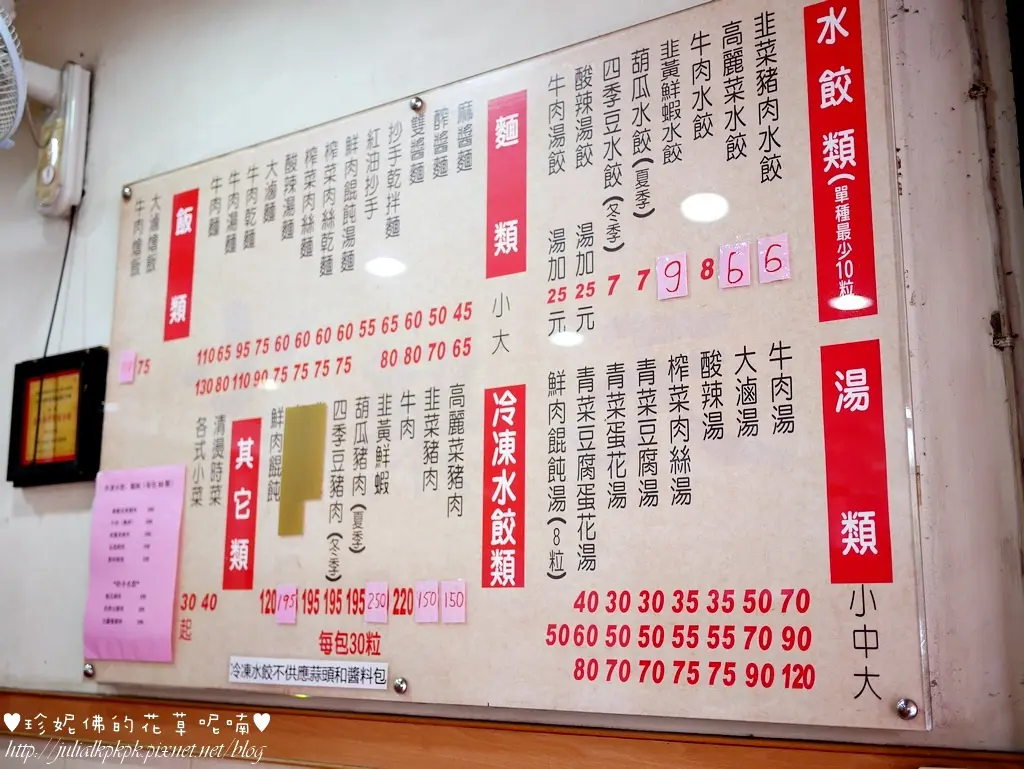 水餃類(單種最少10粒)
韭菜豬肉水餃
高麗菜水餃
牛肉水餃
韭黃鮮蝦水餃
葫瓜水餃(夏季)
四季豆水餃(冬季)
酸辣湯餃 湯加25元
牛肉湯餃 湯加25元
7 7 9 8 6 6
麵類
小
大
麻醬麵
醡醬麵
雙醬麵
抄手乾拌麵
紅油抄手
鮮肉餛飩湯麵
榨菜肉絲乾麵
榨菜肉絲麵
酸辣湯麵
大滷麵
牛肉乾麵
牛肉湯麵
牛肉麵
110 65 95 75 60 60 60 60 55 65 60 50 45
130 80 110 90 75 75 75 75 80 80 70 65
飯類
大滷燴飯
牛肉燴飯
75
湯類
小
中
大
牛肉湯
大滷湯
酸辣湯
榨菜肉絲湯
青菜豆腐湯
青菜蛋花湯
青菜豆腐蛋花湯
鮮肉餛飩湯(8粒)
40 30 30 35 35 50 70
50 60 50 50 55 55 70 90
80 70 70 75 75 90 120
冷凍水餃類
高麗菜豬肉
韭菜豬肉
牛肉
韭黃鮮蝦
葫瓜豬肉(夏季)
四季豆豬肉(冬季)
鮮肉餛飩
120 195 195 195 195 250 220 150 150
每包30粒
冷凍水餃不供應蒜頭和醬料包
其它類
清燙時菜
各式小菜
30 40
起
♥珍妮佛的花草呢喃♥
http://julialkpkpk.pixnet.net/blog